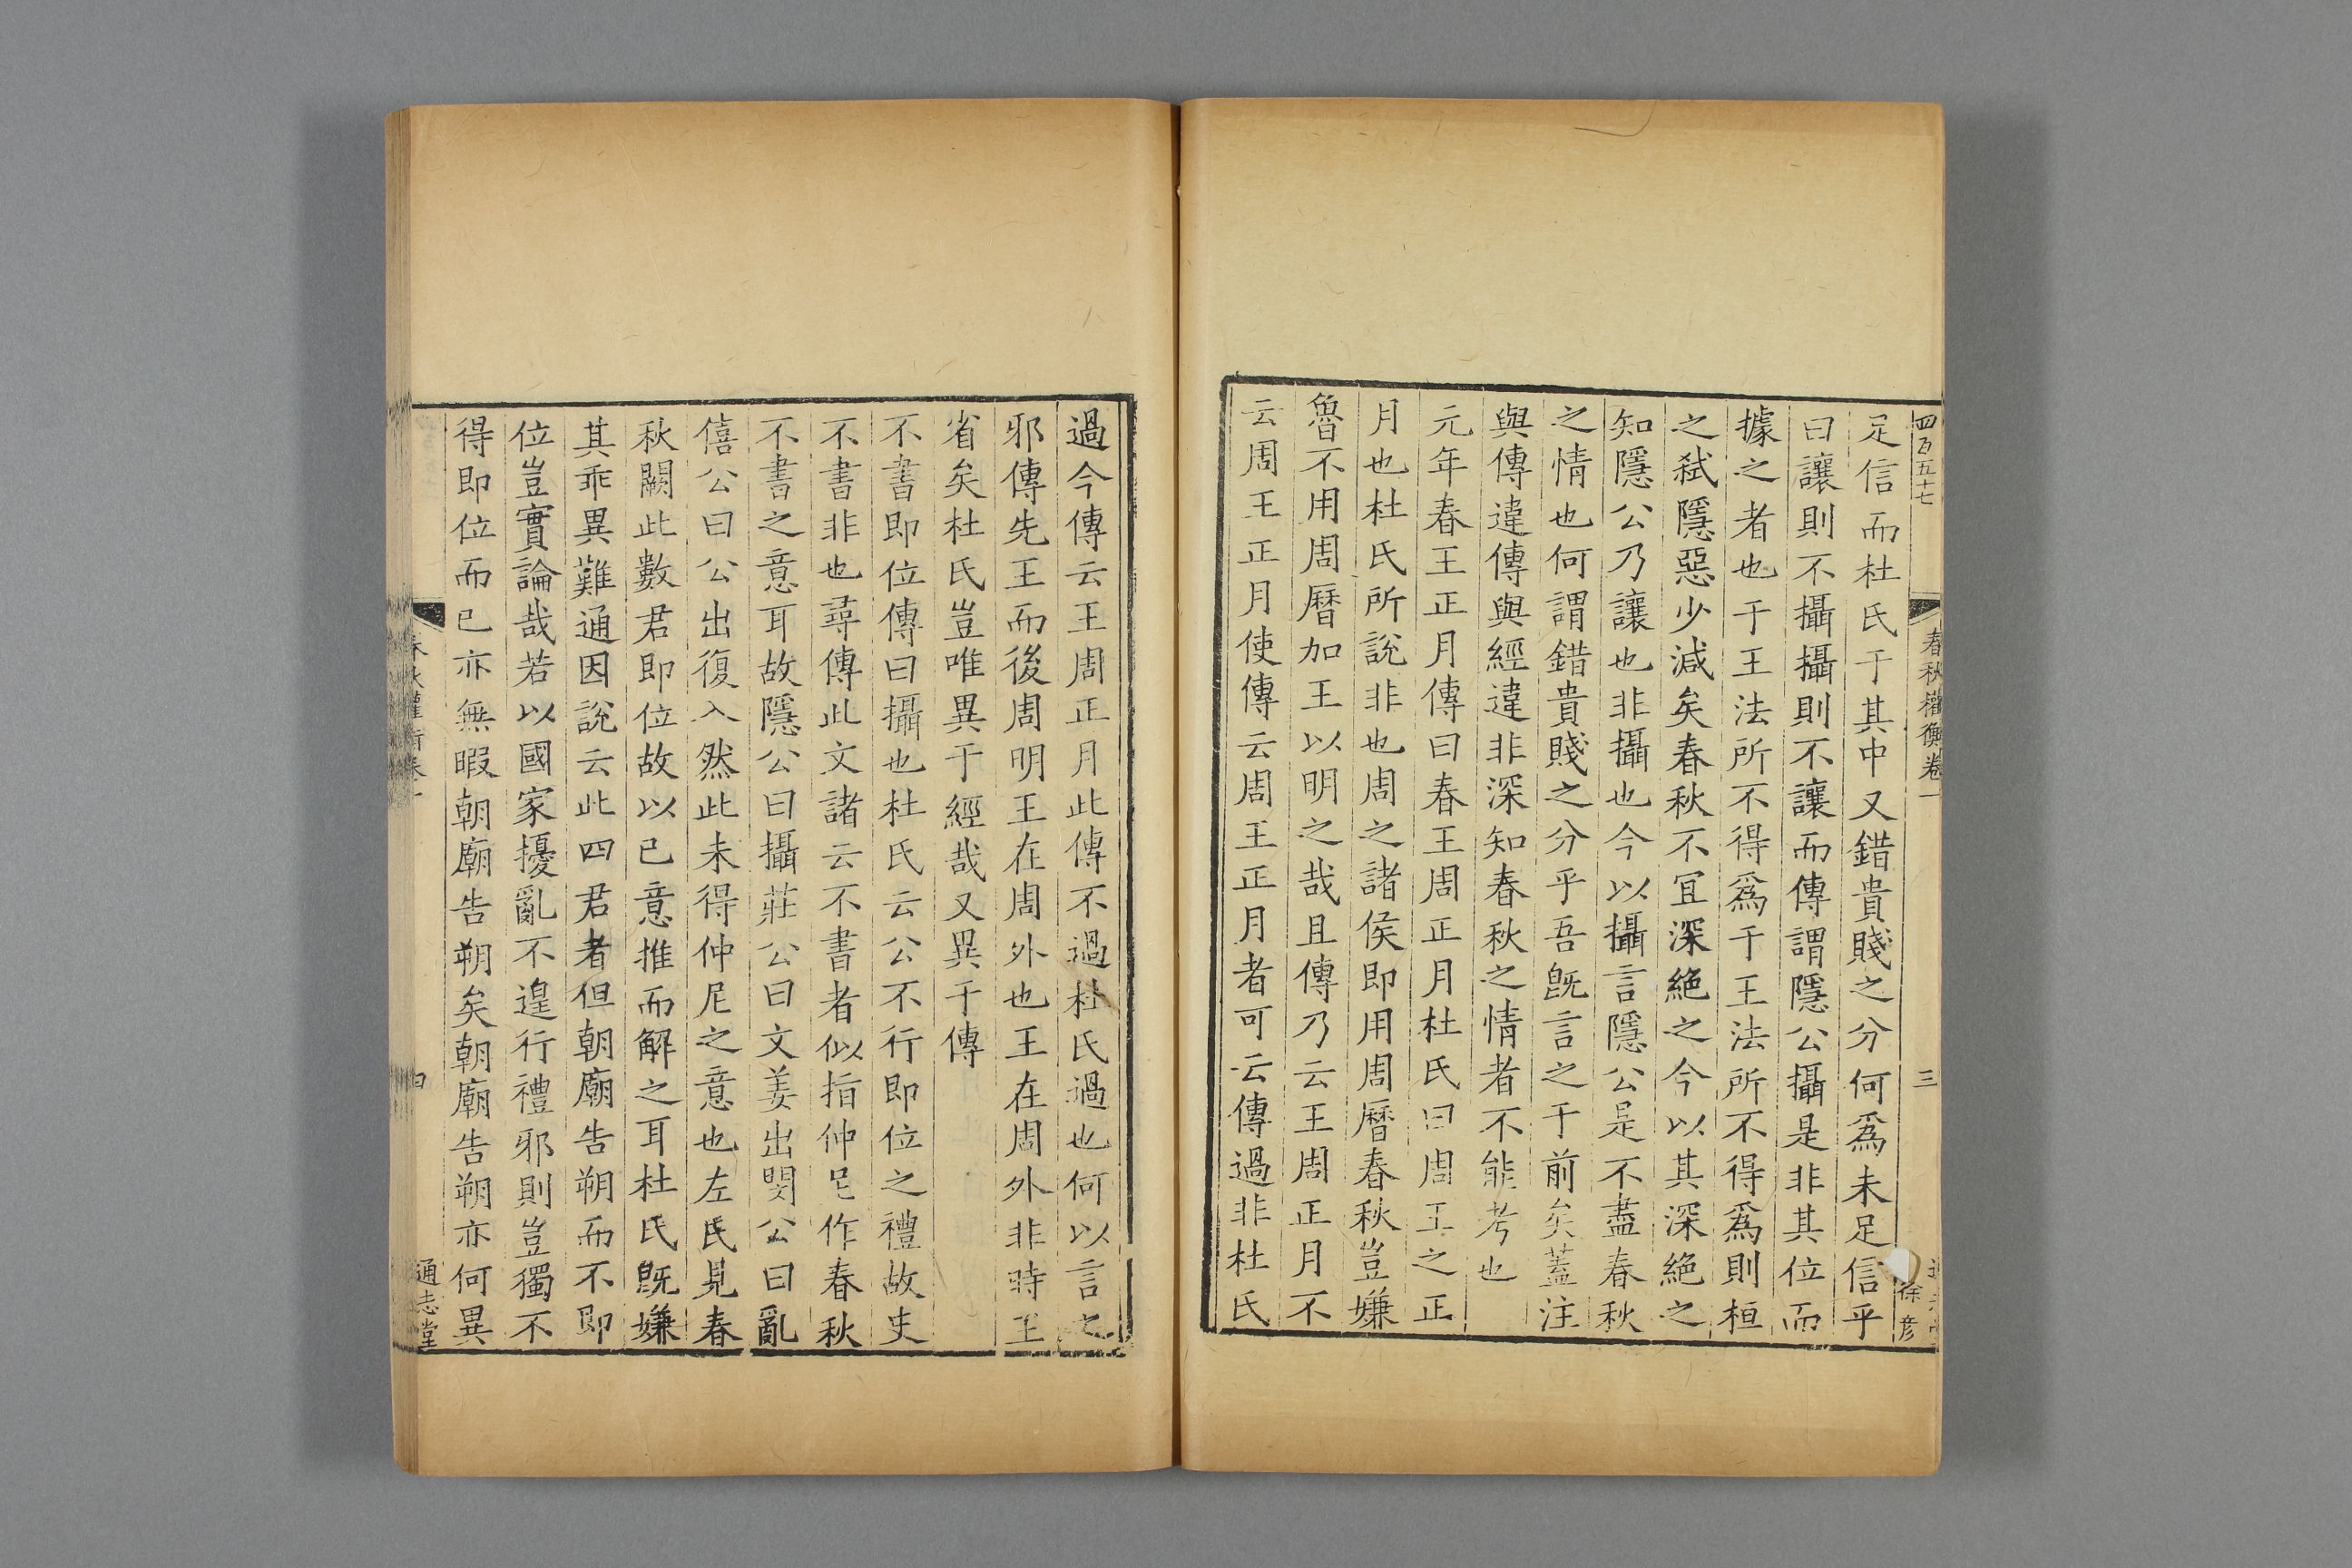 四百五十七
春秋權衡卷一
三
徐彥
足信而杜氏于其中又錯貴賤之分何爲未足信乎
曰讓則不攝攝則不讓而傳謂隱公攝是非其位而
據之者也于王法所不得爲于王法所不得爲則桓
之弑隱惡少減矣春秋不宜深絕之今以其深絕之
知隱公乃讓也非攝也今以攝言隱公是不盡春秋
之情也何謂錯貴賤之分乎吾旣言之于前矣蓋注
與傳違傳與經違非深知春秋之情者不能考也
元年春王正月傳曰春王周正月杜氏曰周王之正
月也杜氏所說非也周之諸侯即用周曆春秋豈嫌
魯不用周曆加王以明之哉且傳乃云王周正月不
云周王正月使傳云周王正月者可云傳過非杜氏
過今傳云王周正月此傳不過杜氏過也何以言之
邪傳先王而後周明王在周外也王在周外非時王
省矣杜氏豈唯異于經哉又異于傳
不書即位傳曰攝也杜氏云公不行即位之禮故史
不書非也尋傳此文諸云不書者似指仲尼作春秋
不書之意耳故隱公曰攝莊公曰文姜出閔公曰亂
僖公曰公出復入然此未得仲尼之意也左氏見春
秋闕此數君即位故以已意推而解之耳杜氏旣嫌
其乖異難通因說云此四君者但朝廟告朔而不即
位豈實論哉若以國家擾亂不遑行禮邪則豈獨不
得即位而已亦無暇朝廟告朔矣朝廟告朔亦何異
春秋權衡卷一
四
通志堂